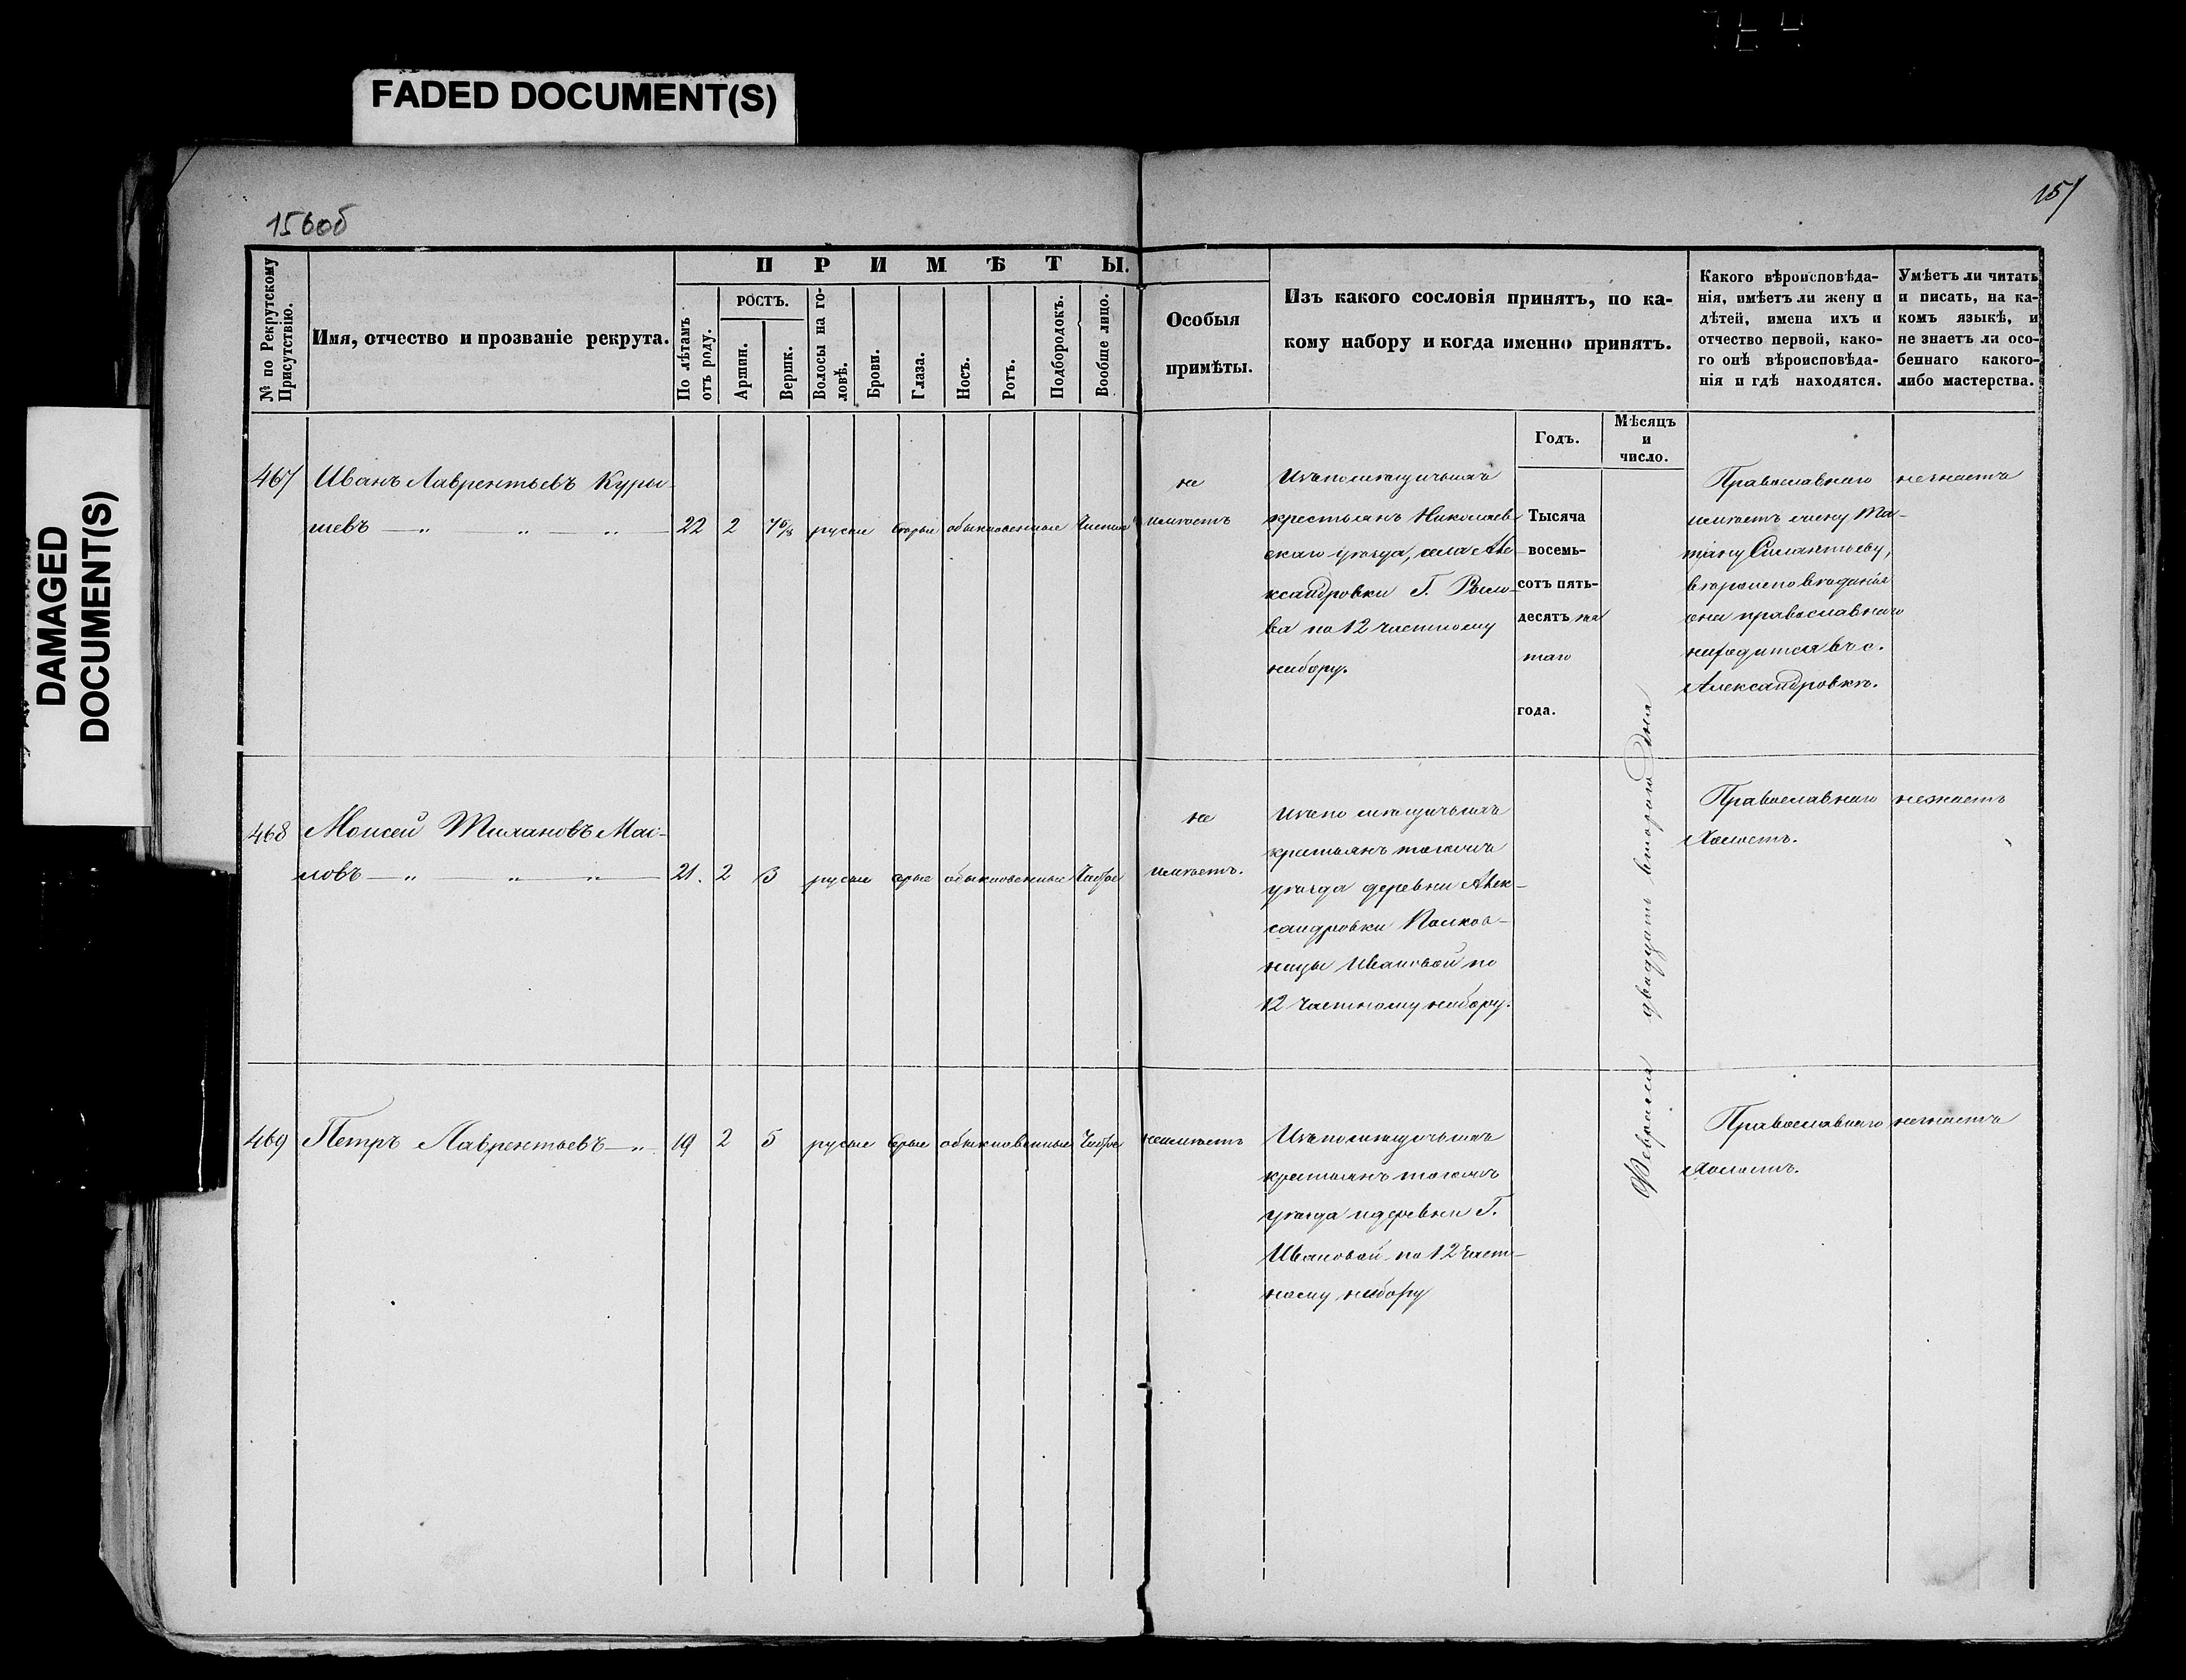 FADED DOCUMENT(S)
DAMAGED
DOCUMENT(S)
156об
157
№ по Рекрутскому
Присутствію.
Имя, отчество и прозваніе рекрута.
ПРИМѢТЫ.
По лѣтамъ
отъ роду.
РОСТЪ.
Аршин.
Вершк.
Волосы на го-
ловѣ.
Брови.
Глаза.
Носъ.
Ротъ.
Подбородокъ.
Вообще лицо.
Особыя
примѣты.
Изъ какого сословія принятъ, по ка-
кому набору и когда именно принятъ.
Годъ.
Мѣсяцъ
и
число.
Какого вѣроисповѣда-
нія, имѣетъ ли жену и
дѣтей, имена ихъ и
отчество первой, како-
го онѣ вѣроисповѣда-
нія и гдѣ находятся.
Умѣетъ ли читать
и писать, на ка-
комъ языкѣ, и
не знаетъ ли осо-
беннаго какого-
либо мастерства.
467
Иванъ Лаврентьевъ Куры-
шевъ — „ — „ — „ —
22 2 русые сѣрые обыкновенные чистое
не
имѣетъ
Изъ помѣщичьихъ
крестьянъ Николаев-
скаго уѣзда, села Але-
ксандровки Г.
ва по 12 частному
набору.
Тысяча
восемь-
сотъ пять-
десятъ
таго
года.
Февраля двадцать втораго дня
Православнаго
имѣетъ жену
Силантьеву,
вѣроисповѣданія
она православнаго
находится въ с.
Александровкѣ.
незнаетъ
468
Моисей
ловъ — „ — „ — „ —
21. 2 3 русые сѣрые обыкновенные
не
имѣетъ.
Изъ помѣщичьихъ
крестьянъ тогожъ
уѣзда деревни Алек-
сандровки Полков-
ницы Ивановой по
12 частному набору.
Православнаго
Холостъ.
незнаетъ
469
Петръ Лаврентьевъ — „
19 2 5 русые сѣрые обыкновенные
неимѣетъ
Изъ помѣщичьихъ
крестьянъ тогожъ
уѣзда и деревни Г.
Ивановой по 12 част-
ному набору
Православнаго
Холостъ.
незнаетъ